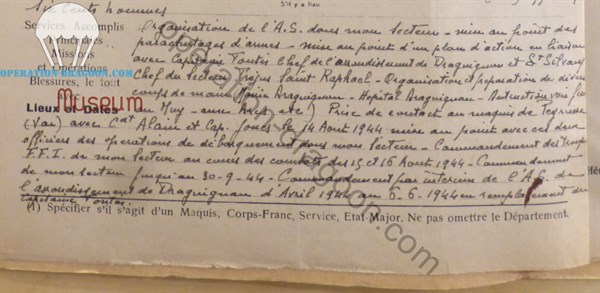 S'il y a lieu
cents hommes
Services Accomplis
Itinéraires
Missions
et Opérations
Blessures, le tout
Lieux et Dates
Organisation de l'A.S. dans mon secteur - mise au point des
parachutages d'armes - mise au point d'un plan d'action en liaison
avec Capitaine Chef de l'arrondissement de Draguignan et
Chef du secteur Fréjus Saint Raphael - Organisation et préparation de divers
coups de main Mairie Draguignan - Hopital Draguignan - voie
du Muy - Arcs etc) Prise de contact au maquis de
(Var) avec Cdt Alain et Cap. Jones le 14 Août 1944 mise au point avec ces deux
officiers des opérations de débarquement dans mon secteur - Commandement des
F.F.I. de mon secteur au cours des combats des 15 et 16 Août 1944 - Commandement
de mon secteur jusqu'au 30-9-44 - Commandement par intérim de l'A.S. de
l'arrondissement de Draguignan d'Avril 1944 au 6.6.1944 en remplacement du
capitaine
(1) Spécifier s'il s'agit d'un Maquis, Corps-Franc, Service, Etat-Major. Ne pas omettre le Département.
OPERATION-DRAGOON.COM
Museum